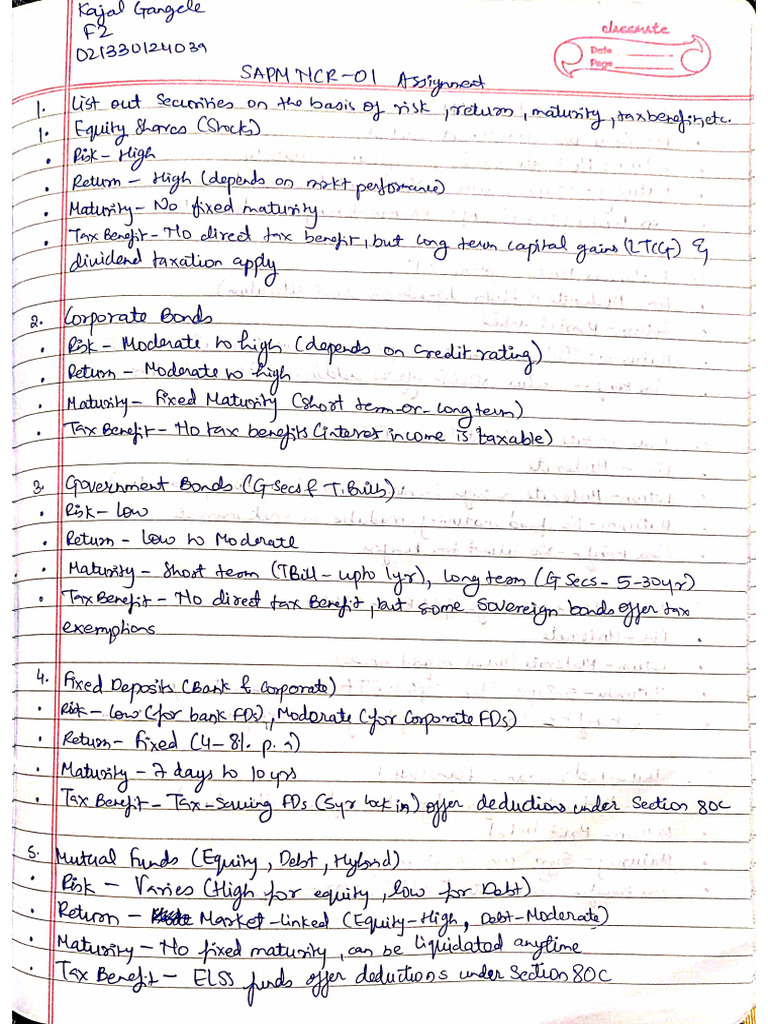 Kajal Gangele
F2
classmate
Date
Page
021330124039
SAPM NCR-01 Assignment
1. List out Securities on the basis of risk, return, maturity, tax benefit, etc.
1. Equity Shares (Stocks)
• Risk - High
• Return - High (depends on mrkt performance)
• Maturity - No fixed maturity
• Tax Benefit - No direct tax benefit, but long term capital gains (LTCG) &
dividend taxation apply
2. Corporate Bonds
• Risk - Moderate to high (depends on credit rating)
• Return - Moderate to high
• Maturity - Fixed Maturity (short term-or-long term)
• Tax Benefit - No tax benefits (interest income is taxable)
3. Government Bonds (G Secs & T.Bills)
• Risk - low
• Return - low to Moderate
• Maturity - Short term (TBill - upto 1yr), long term (G Secs - 5-30yr)
• Tax Benefit - No direct tax Benefit, but some Sovereign bonds offer tax
exemptions
4. Fixed Deposits (Bank & Corporate)
• Risk - low (for bank FDs), Moderate (for Corporate FDs)
• Return - Fixed (4-8% p.a)
• Maturity - 7 days to 10 yrs
• Tax Benefit - Tax-Saving FDs (5yr lock in) offer deductions under Section 80C
5. Mutual Funds (Equity, Debt, Hybrid)
• Risk - Varies (High for equity, low for Debt)
• Return - Market-linked (Equity-High, Debt-Moderate)
• Maturity - No fixed maturity, can be liquidated anytime
• Tax Benefit - ELSS funds offer deductions under Section 80C